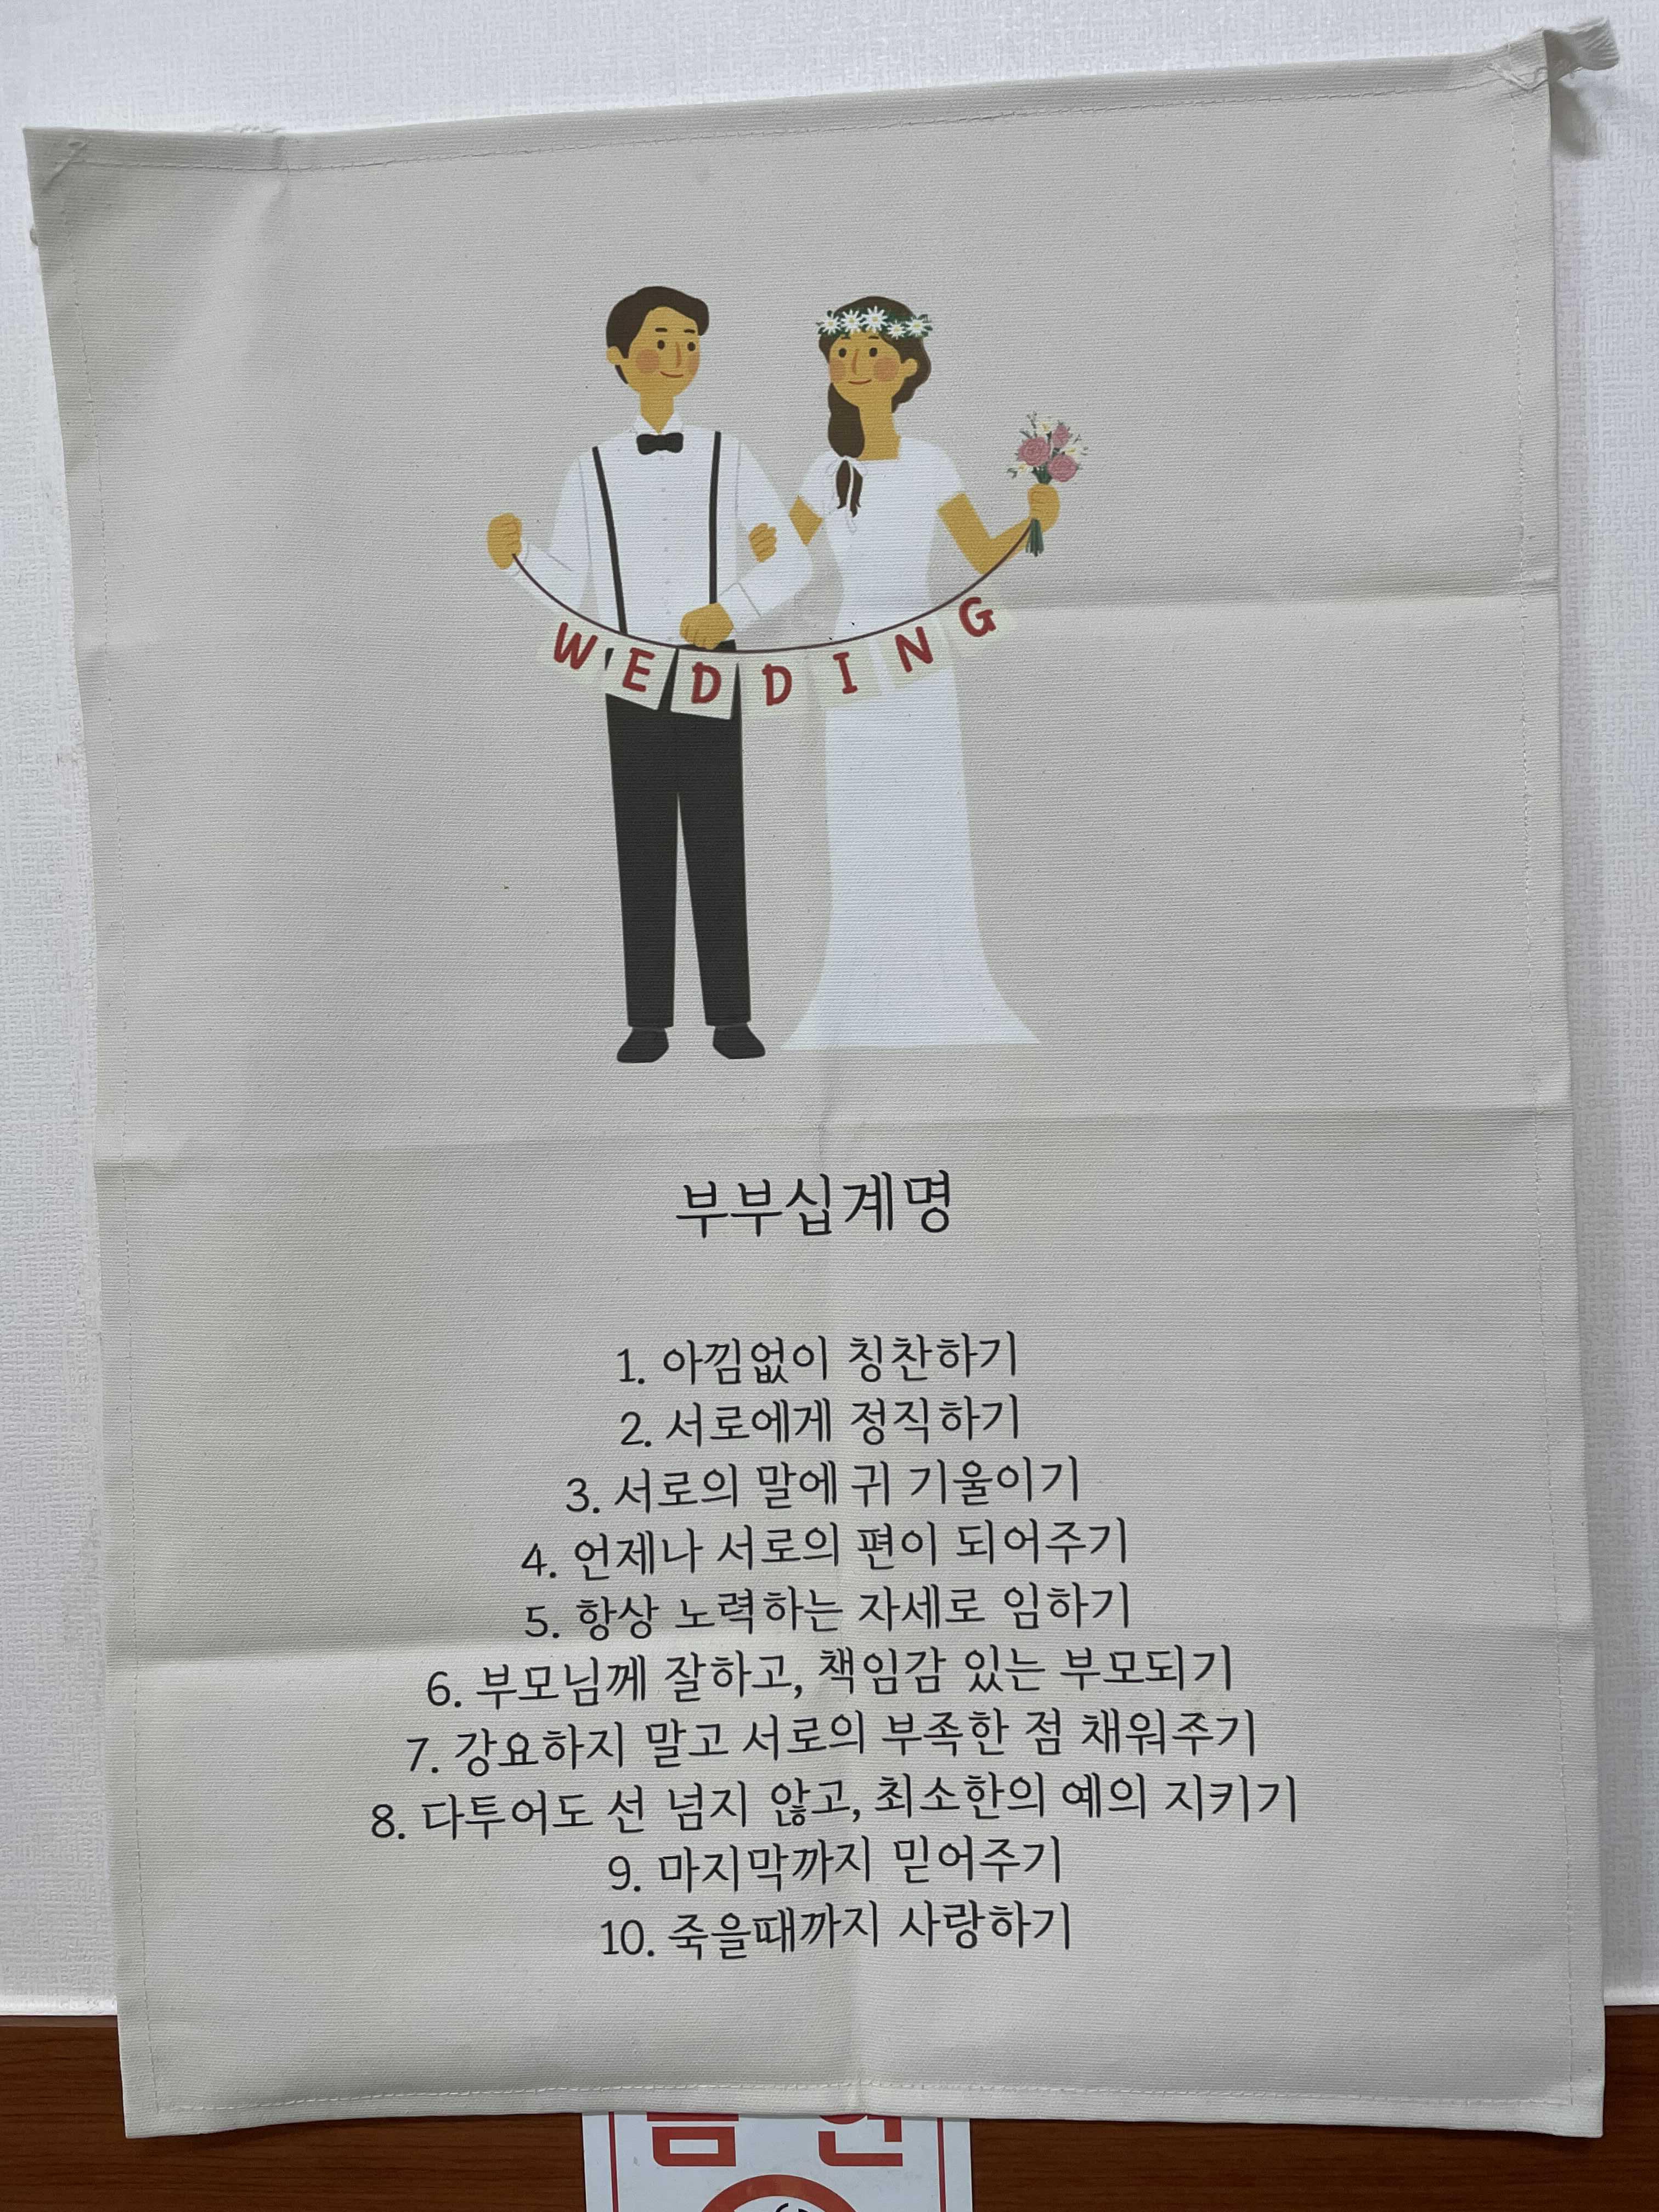 WEDDING
부부십계명
1. 아낌없이 칭찬하기
2. 서로에게 정직하기
3. 서로의 말에 귀 기울이기
4. 언제나 서로의 편이 되어주기
5. 항상 노력하는 자세로 임하기
6. 부모님께 잘하고, 책임감 있는 부모되기
7. 강요하지 말고 서로의 부족한 점 채워주기
8. 다투어도 선 넘지 않고, 최소한의 예의 지키기
9. 마지막까지 믿어주기
10. 죽을때까지 사랑하기